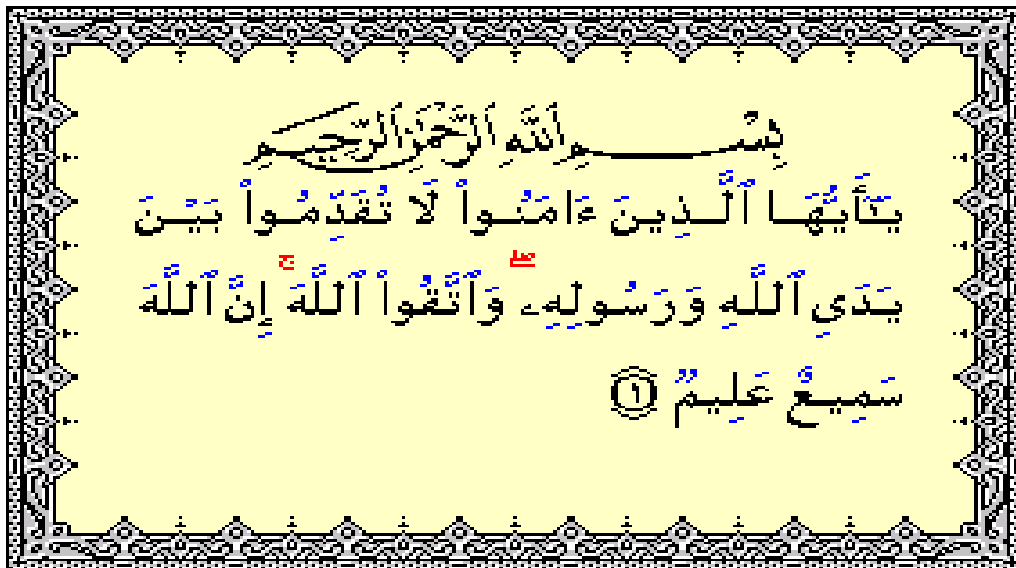 بِسْمِ اللَّهِ الرَّحْمَنِ الرَّحِيمِ
يَـٰٓأَيُّهَا ٱلَّذِينَ ءَامَنُوا۟ لَا تُقَدِّمُوا۟ بَيْنَ
يَدَىِ ٱللَّهِ وَرَسُولِهِۦ ۖ وَٱتَّقُوا۟ ٱللَّهَ ۚ إِنَّ ٱللَّهَ
سَمِيعٌ عَلِيمٌ ١